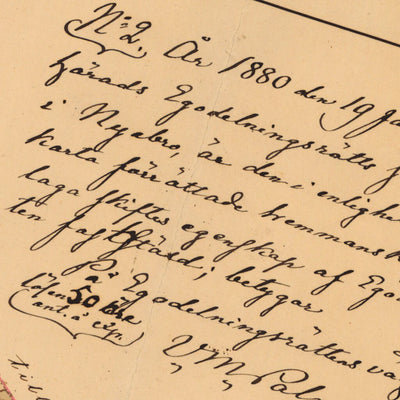 No 2. År 1880 den 19 Ja
härads Egodelningsrätts
i Nyabro, är den i enlighe
karta förrättade hemmans
laga skiftes egenskap af Ego
ten fastställd; betygar
På Egodelningsrättens väg
Lösen 50 öre
ant. å exp.
til